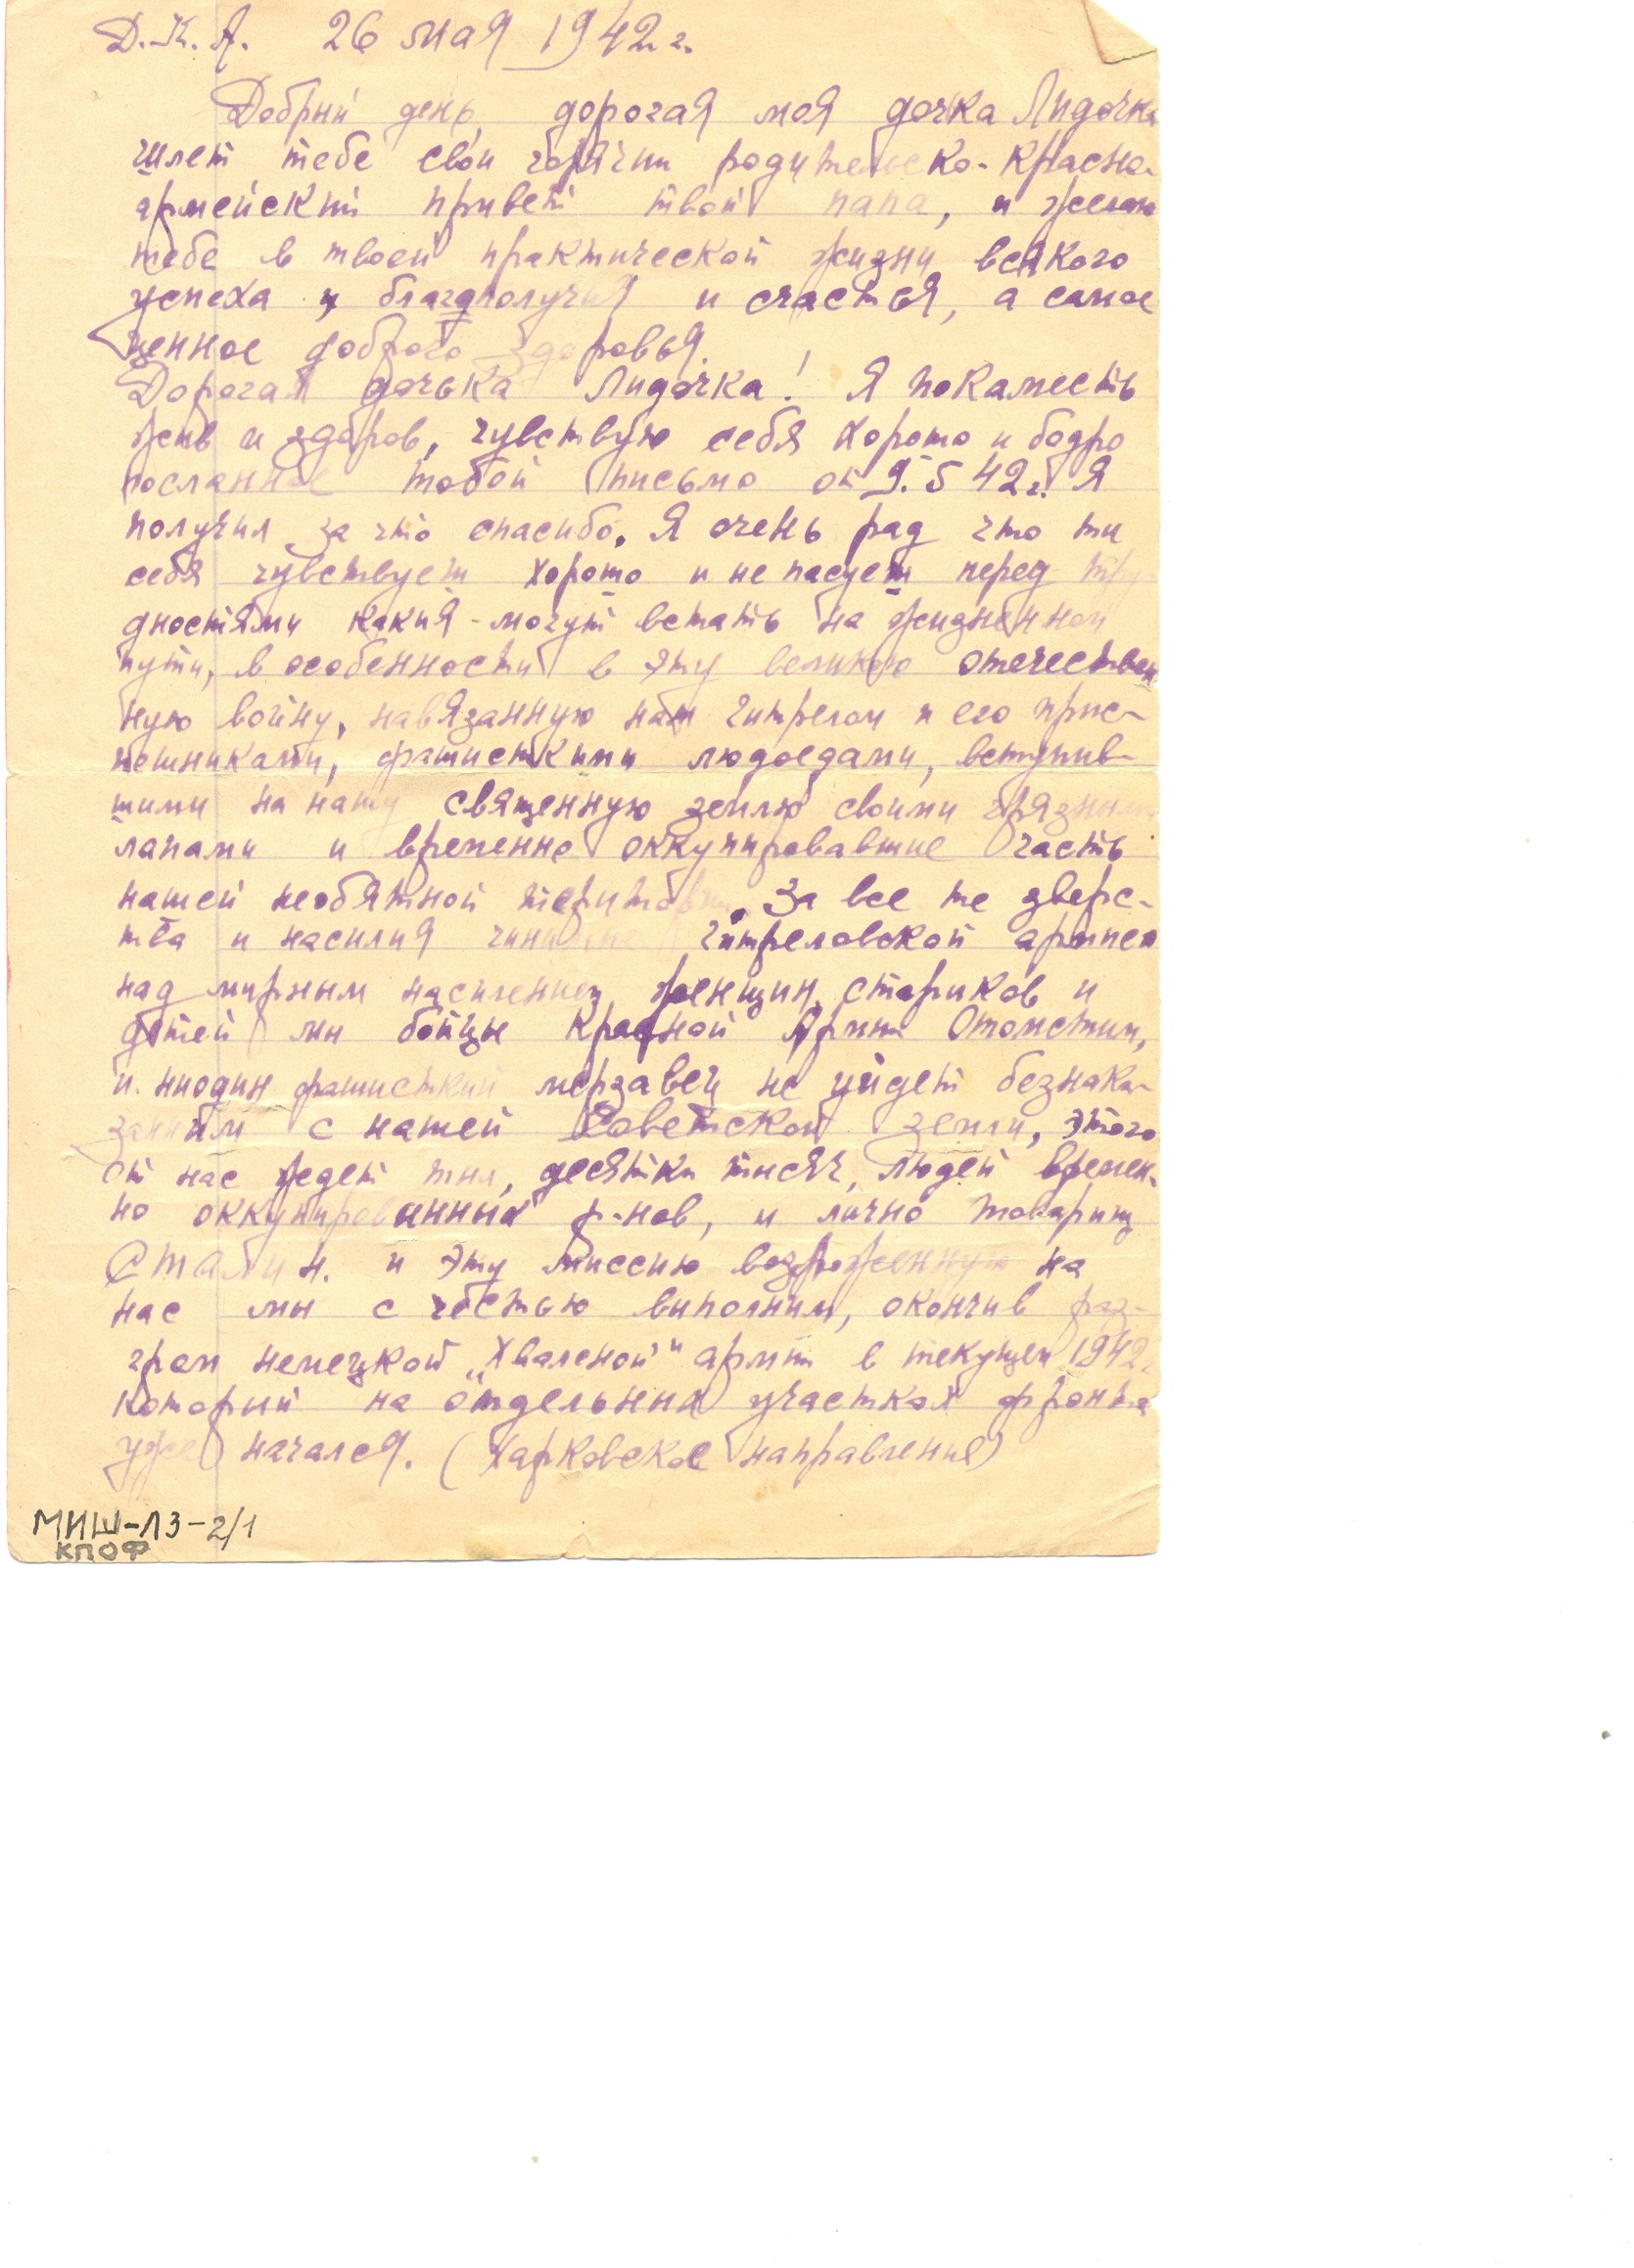 Д.К.А. 26 мая 1942 г.
Добрый день, дорогая моя дочка Лидочка
шлет тебе свои горячий родительско-красно-
армейский привет твой папа, и желаю
тебе в твоей практической жизни всякого
успеха и благополучия и счастья, а самое
ценное доброго здоровья.
Дорогая дочька Лидочка! Я покаместь
жив и здоров, чувствую себя хорошо и бодро
посланное тобой письмо от 9.5 42 г. Я
получил за что спасибо. Я очень рад что ты
себя чувствуеш хорошо и не пасуеш перед тру-
дностями какия-могут встать на жизненном
пути, в особенности в эту великую отечествен
ную войну, навязанную нам гитрелом и его прис-
пешниками, фашисткими людоедами, вступив-
шими на нашу священную землю своими грязными
лапами и временно оккупировавшие часть
нашей необятной територии. За все те зверс-
тва и насилия гитреловской армией
над мирным населением, женщин, стариков и
детей мы бойцы Красной Армии Отомстим,
и ниодин фашисткий мерзавец не уйдет безнака-
занным с нашей Советской земли, этого
от нас ждет тыл, десятки тысяч, людей времен-
но оккупированных р-нов, и лично товарищ
Сталин. и эту миссию возложенную на
нас мы с честью выполним, окончив раз-
гром немецкой „Хваленой" армии в текущем 1942 г.
который на отдельных участках фронта
уже начался. (Харковское направление)
МИШ-ЛЗ-2/1
КПОФ